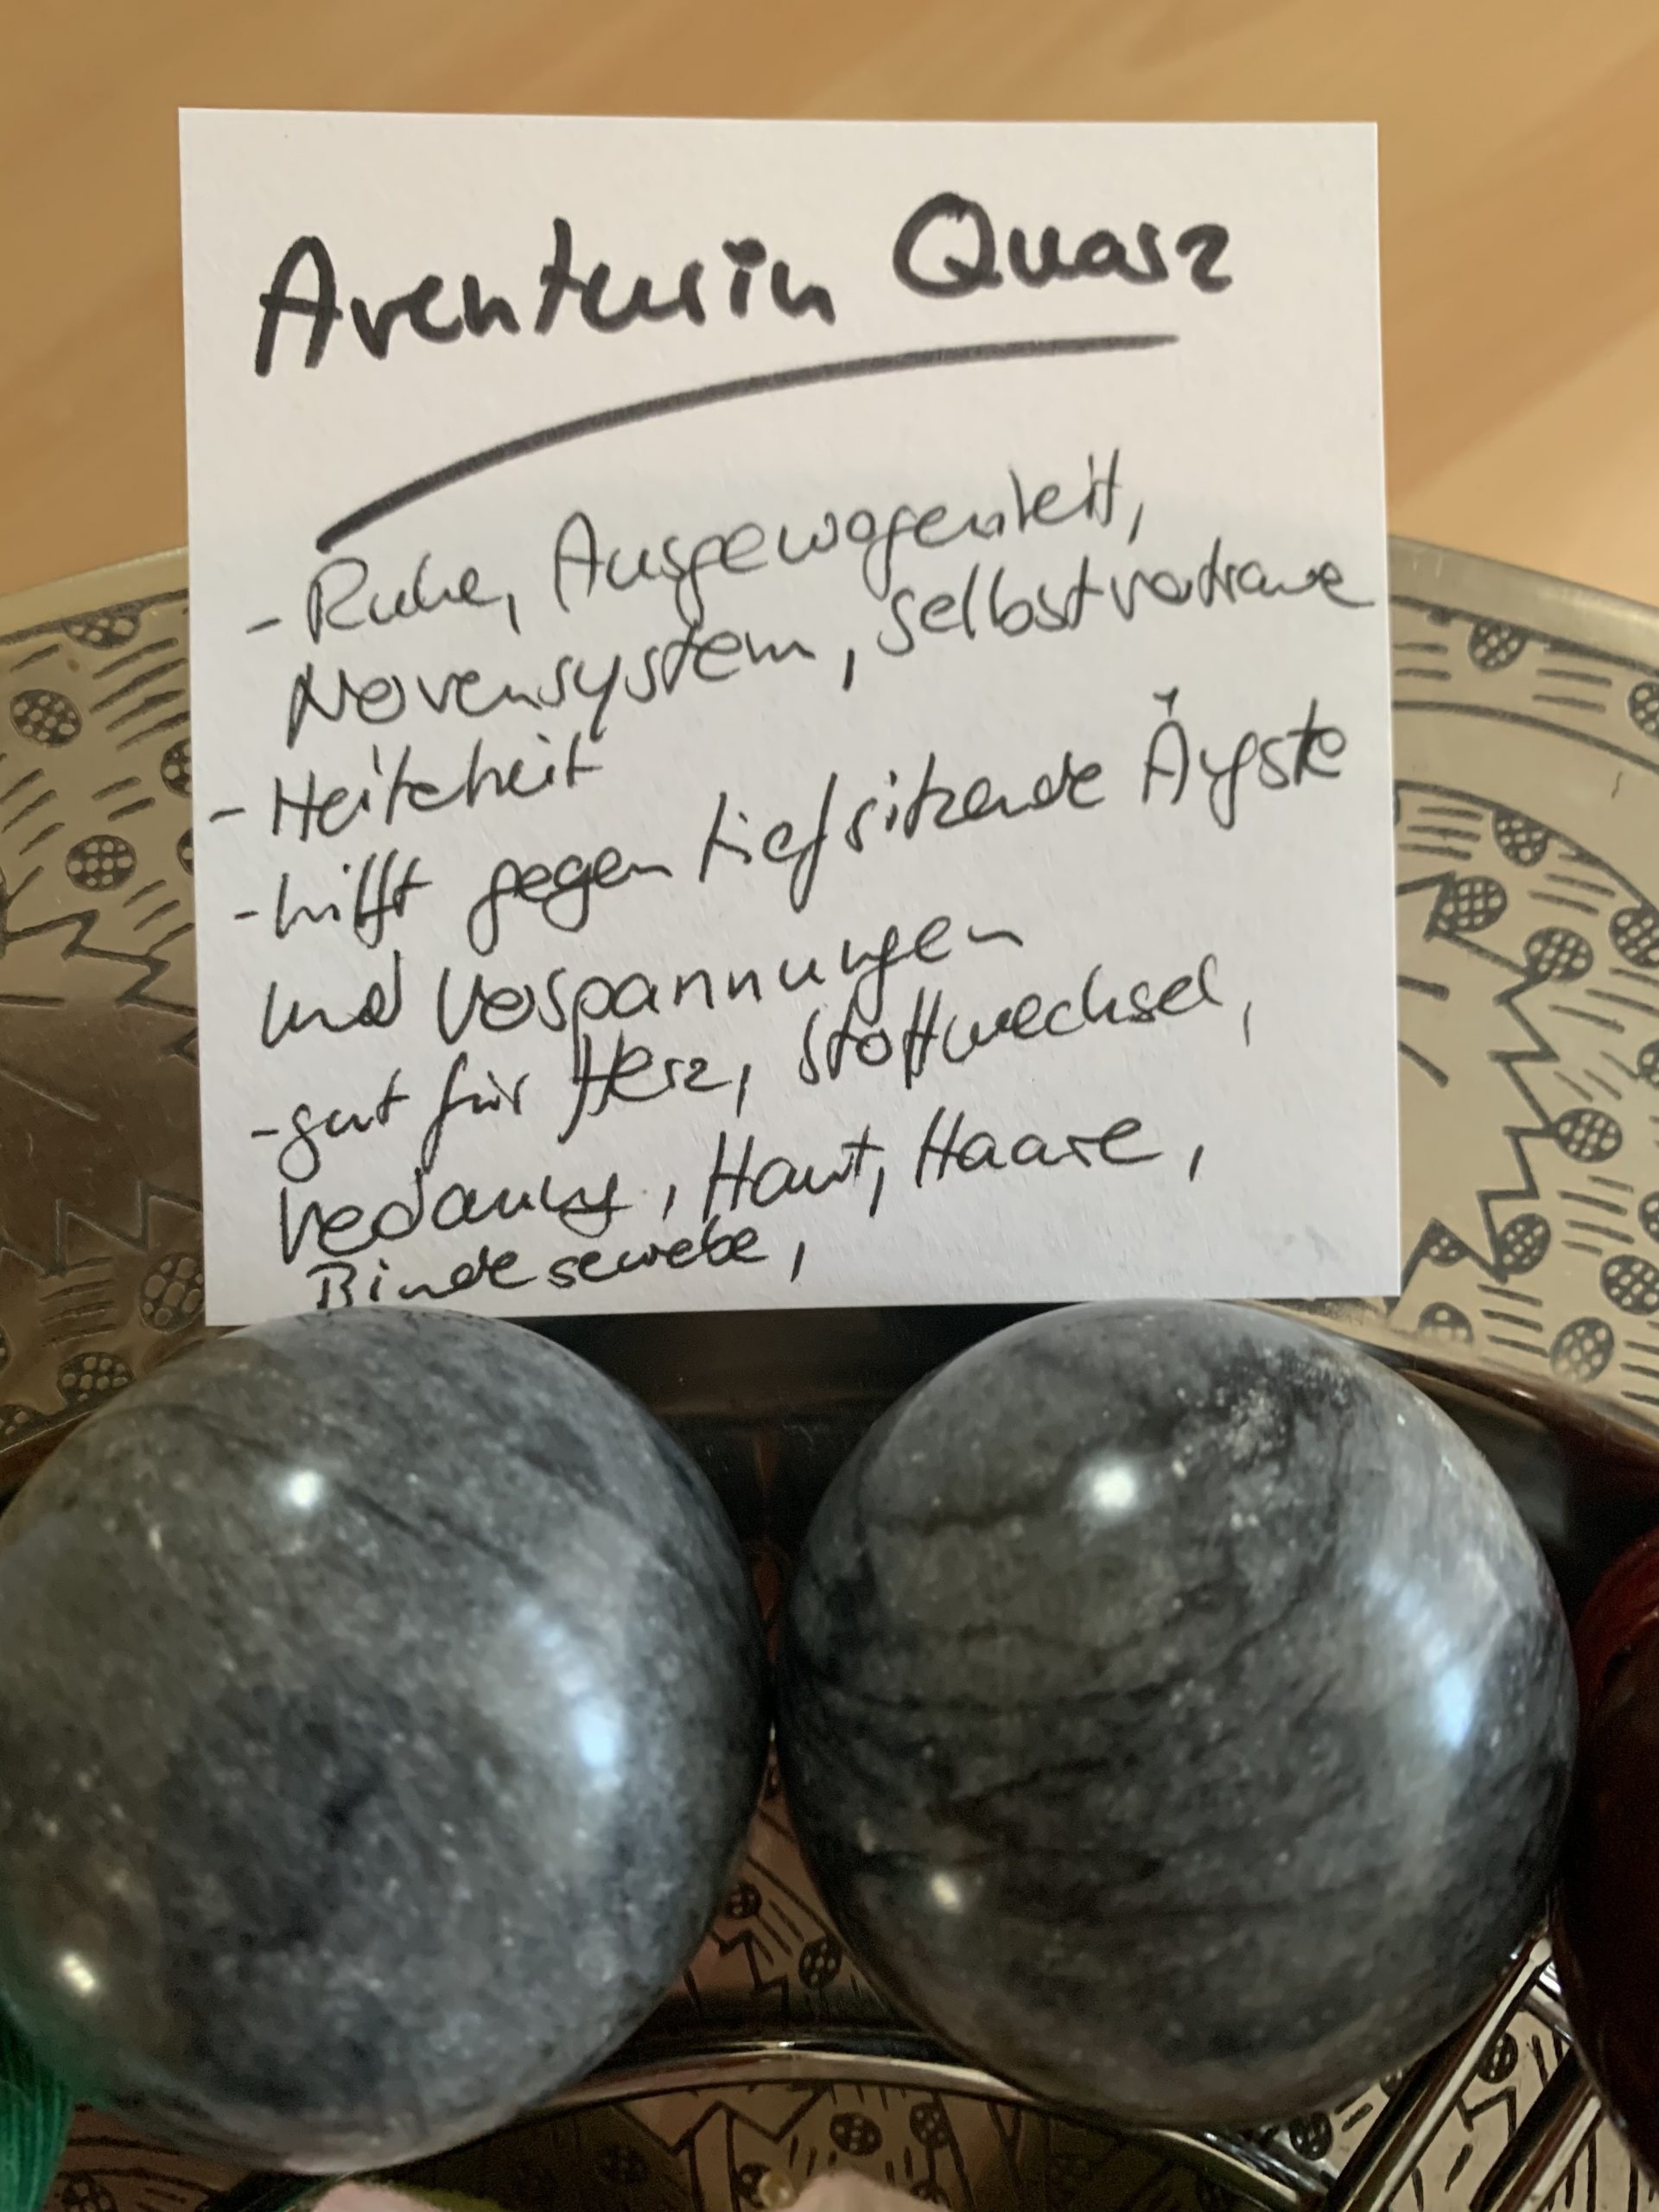 Aventurin Quarz
- Ruhe, Ausgewogenheit,
Nervensystem, selbstvertraue
- Heiterheit
- hilft gegen tiefsitzende Ängste
und Verspannungen
- gut für Herz, Stoffwechsel,
Verdauung, Haut, Haare,
Bindegewebe,